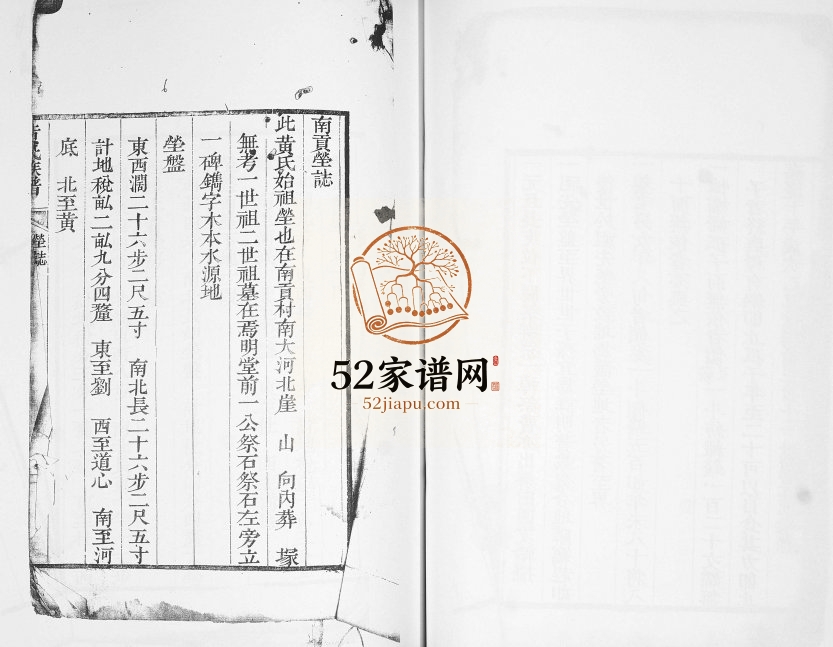 南貢塋誌
此黄氏始祖塋也在南貢村南大河北崖 山 向内葬 塚
無考一世祖二世祖墓在焉明堂前一公祭石祭石左旁立
一碑鐫字木本水源地
塋盤
東西濶二十六步二尺五寸 南北長二十六步二尺五寸
計地稅畝二畝九分四釐 東至劉 西至道心 南至河
底 北至黄
氏族譜
塋誌
52家谱网
52jiapu.com